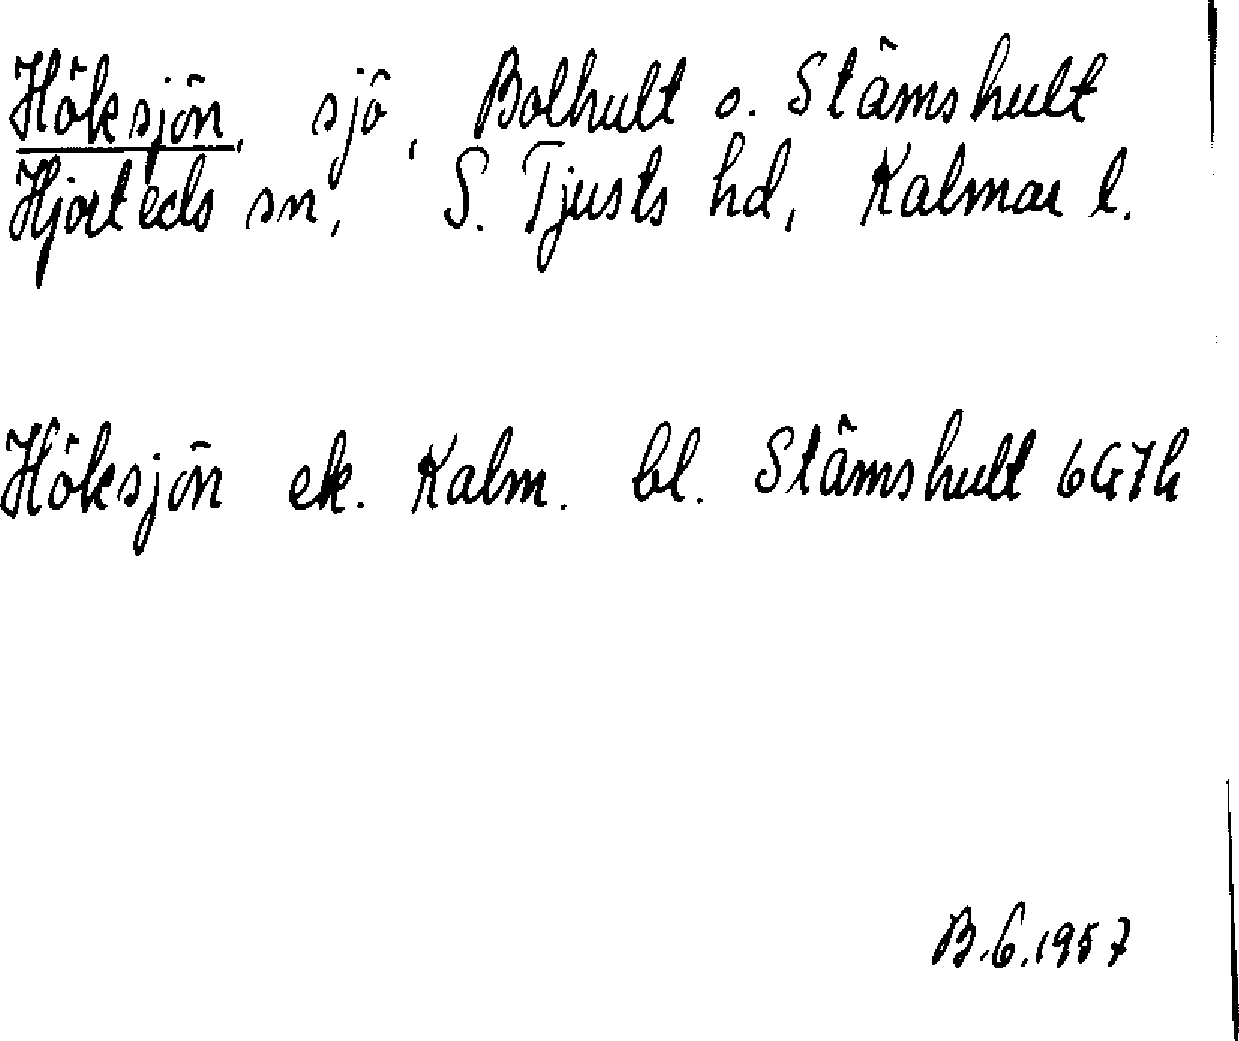 Höksjön, sjö, Bolhult o. Stämshult
Hjorteds sn, S. Tjusts hd, Kalmar l.
Höksjön ek. Kalm. bl. Stämshult 6G7h
B.G.1957